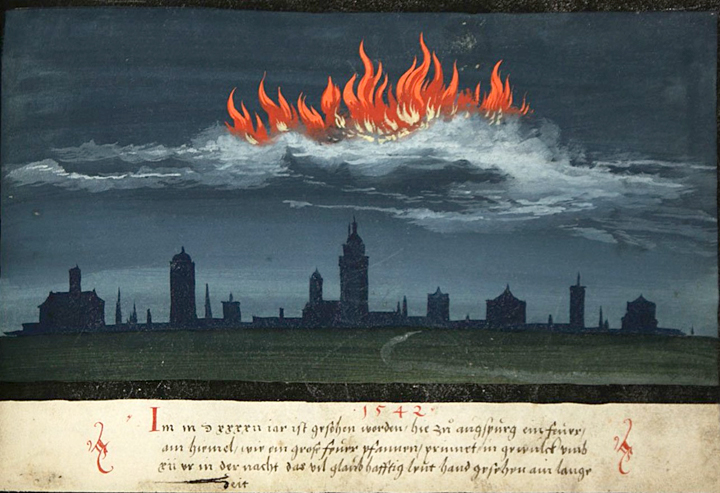 1542
Im m d xxxxii iar ist gesehen worden, hie zů augspurg ein feuer,
am himel, wie ein grosse feuer pfannen, prinnet, in gewülck umb
xii ur in der nacht das vil glaubhafftig leüt hand gesehen ain lange
Zeit